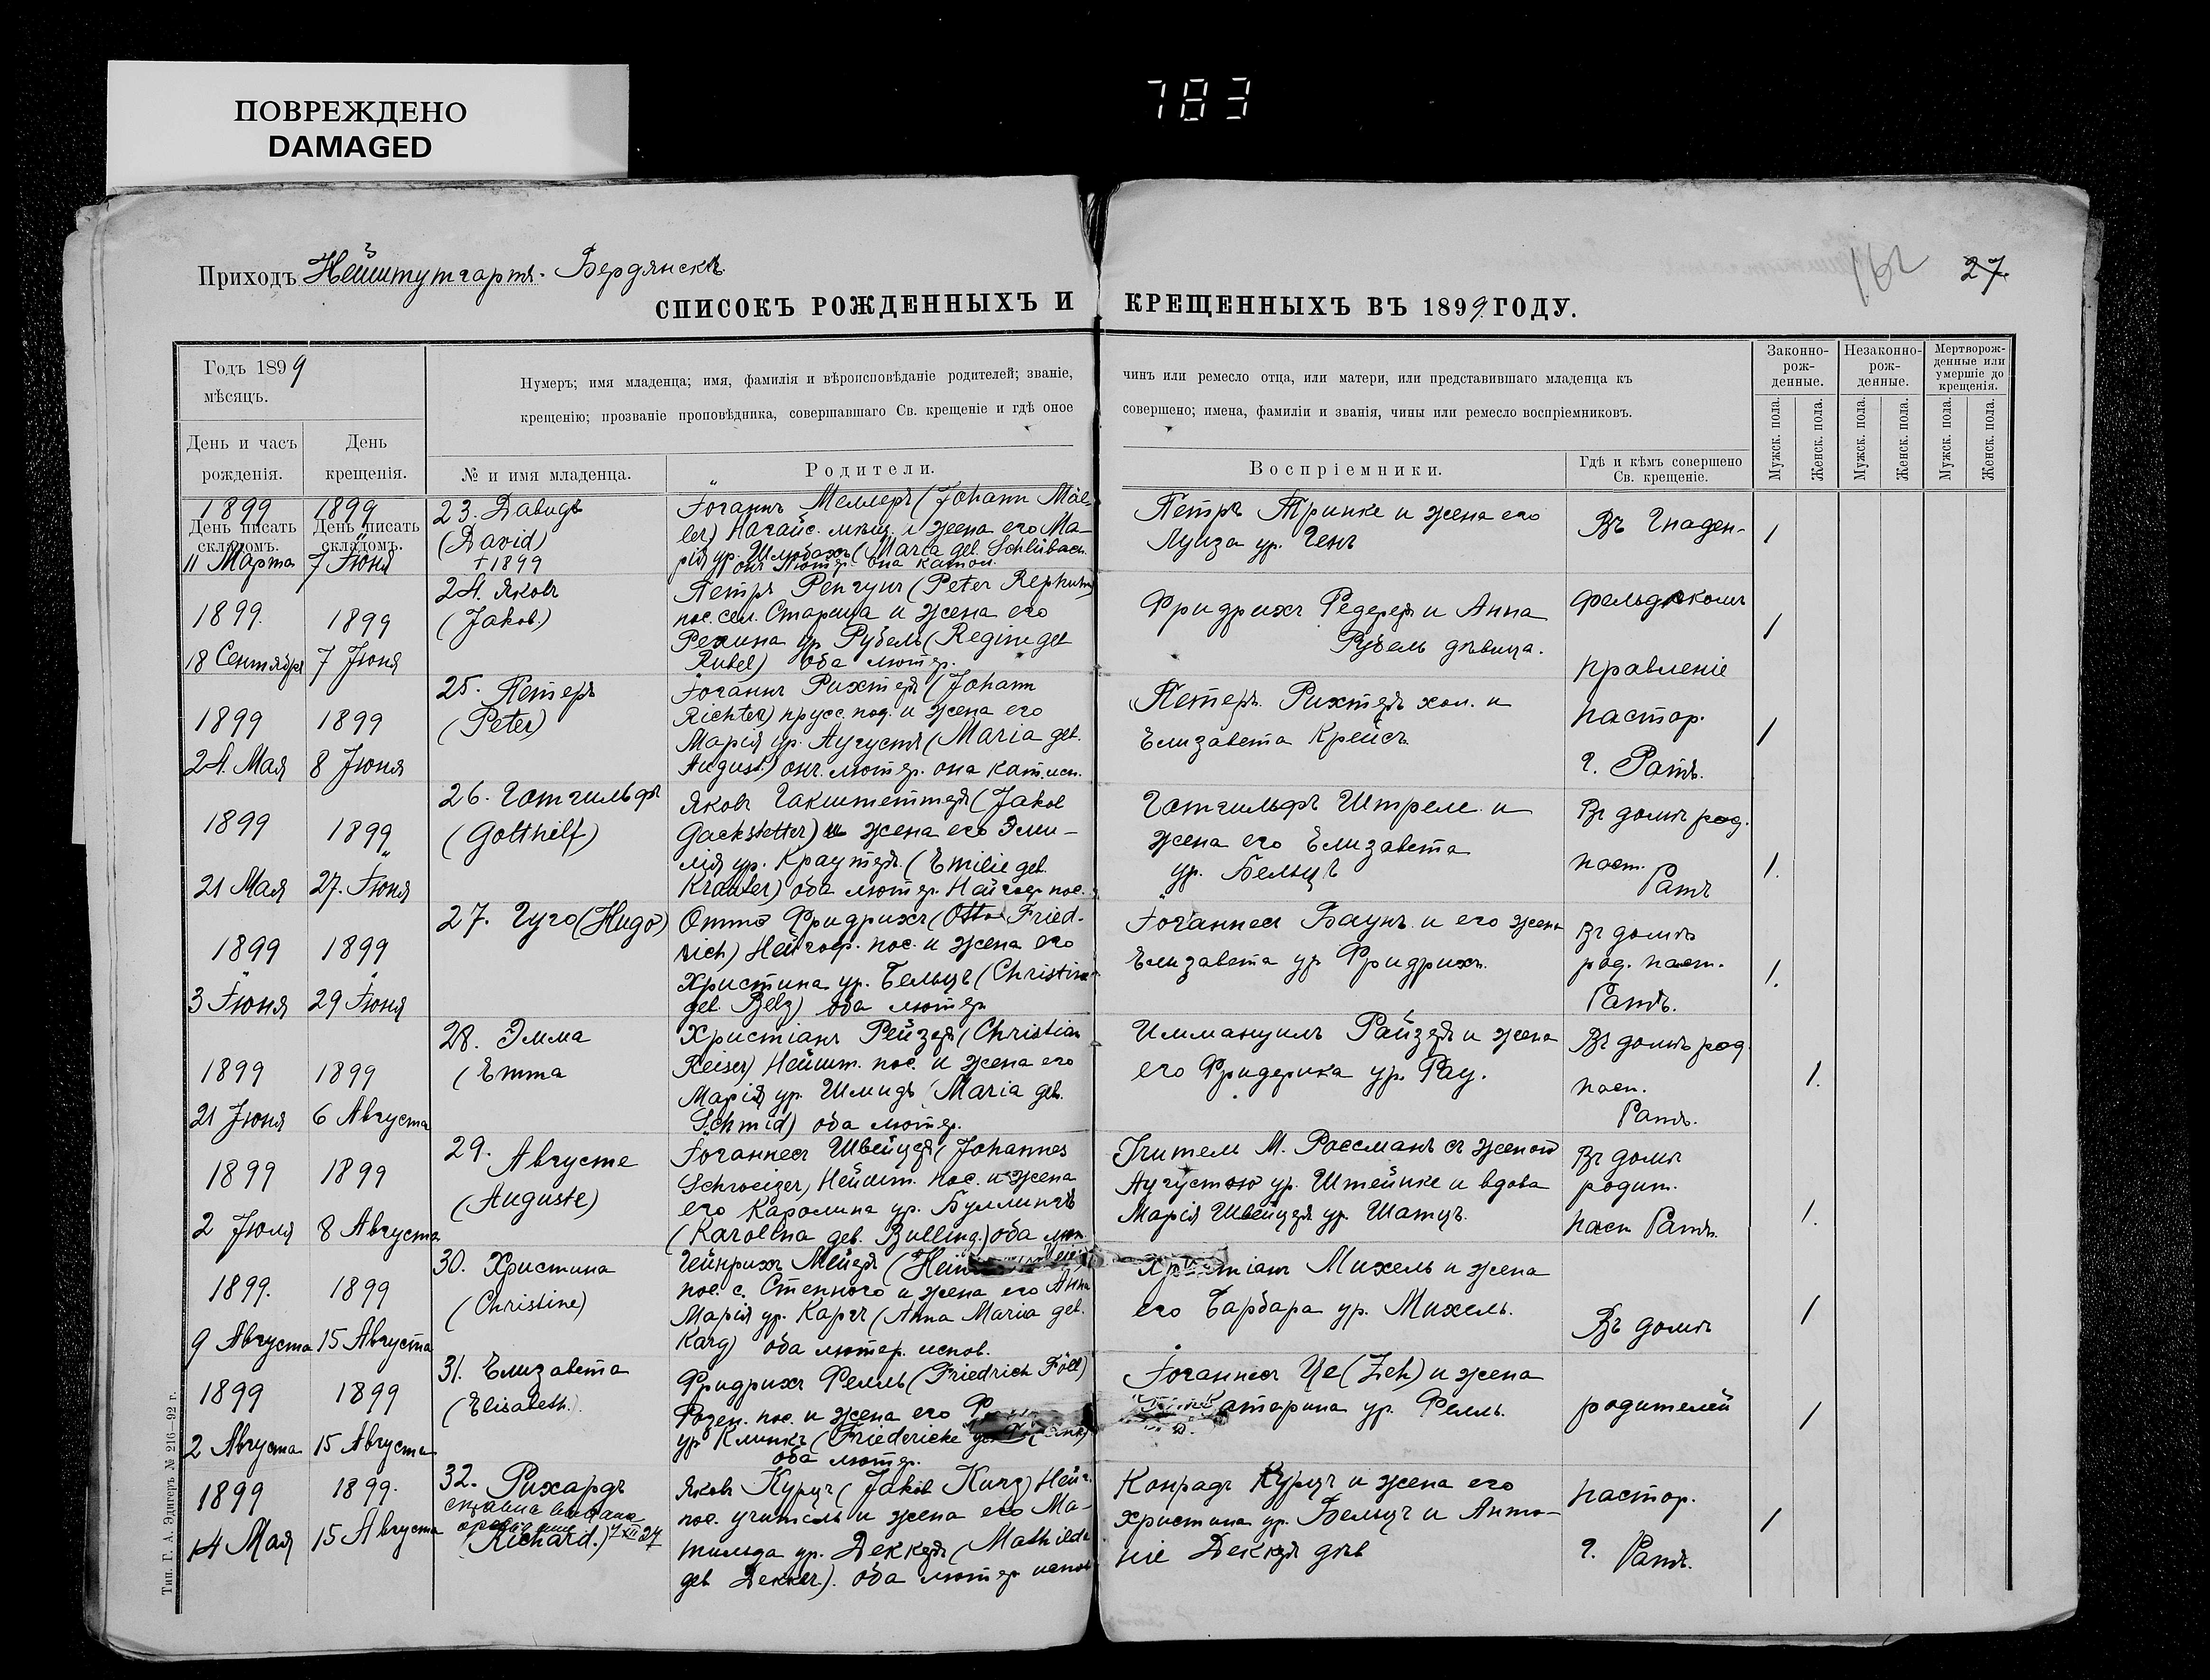 ПОВРЕЖДЕНО
DAMAGED
783
Приходъ Нейштутгартъ-Бердянскъ.
162
27.
СПИСОКЪ РОЖДЕННЫХЪ И КРЕЩЕННЫХЪ ВЪ 1899 ГОДУ.
Годъ 1899
мѣсяцъ.
День и часъ
рожденія.
День
крещенія.
Нумеръ; имя младенца; имя, фамилія и вѣроисповѣданіе родителей; званіе, чинъ или ремесло отца, или матери, или представившаго младенца къ
крещенію; прозваніе проповѣдника, совершавшаго Св. крещеніе и гдѣ оное совершено; имена, фамиліи и званія, чины или ремесло воспріемниковъ.
№ и имя младенца.
Родители.
Воспріемники.
Гдѣ и кѣмъ совершено
Св. крещеніе.
Законно-
рож-
денные.
Незаконно-
рож-
денные.
Мертворож-
денные или
умершіе до
крещенія.
Мужск. пола.
Женск. пола.
Мужск. пола.
Женск. пола.
Мужск. пола.
Женск. пола.
1899
День писать
складомъ.
11 Марта
1899
День писать
складомъ.
7 Іюня
23. Давидъ
(David)
† 1899
Іоганнъ Меллеръ (Johann Mäl-
ler) Нагайс. мѣщ. и жена его Ма-
рія ур. Шлюбахъ (Maria geb. Schlübach.
онъ лютер. она катол.
Петръ Тринке и жена его
Луиза ур. Генъ
Въ Гнаден-
1
1899.
18 Сентября
1899
7 Іюня
24. Яковъ
(Jakob.)
Петръ Репгунъ (Peter Rephun)
пос. сел. Старица и жена его
Регина ур. Рубель (Regine geb
Rubel) оба лютер.
Фридрихъ Редеръ и Анна
Рубель дѣвица.
фельдскомъ
правленіе
1
1899
24. Мая
1899
8 Іюня
25. Петеръ
(Peter)
Іоганнъ Рихтеръ (Johann
Richter) прусс. под. и жена его
Марія ур. Аугустъ (Maria geb.
August.) онъ. лютер. она кат. исп.
Петеръ. Рихтеръ хол. и
Елизавета Крейсъ.
пастор.
г. Ратъ.
1
1899
21 Мая
1899
27. Іюня
26. Готгильфъ
(Gotthilf)
Яковъ Гакштеттеръ (Jakob
Gackstetter) и жена его Эми-
лія ур. Краутеръ. (Emilie geb.
Krauter) оба лютер. Нейгоф. пос.
Готгильфъ Штреле. и
жена его Елизавета
ур. Бельцъ
Въ домѣ род.
паст.
Ратъ
1.
1899
3 Іюня
1899
29 Іюня
27. Гуго (Hugo)
Отто Фридрихъ (Otto Fried-
rich) Нейгоф. пос. и жена его
Христина ур. Бельцъ (Christine
geb. Belz) оба лютер
Іоганнесъ Баунъ. и его жена
Елизавета ур Фридрихъ.
Въ домѣ
род. паст.
Ратъ.
1.
1899
21 Іюня
1899
6 Августа
28. Эмма
(Emma
Христіанъ Рейзеръ (Christian
Reiser) Нейшт. пос. и жена его
Марія ур. Шмидъ (Maria geb.
Schmid) оба лютер.
Иммануилъ Райзеръ и жена
его Фридерика ур. Рау.
Въ домѣ род.
паст.
Ратъ.
1.
1899
2 Іюля
1899
8 Августа
29. Августе
(Auguste)
Іоганнесъ Швейцеръ (Johannes
Schweizer) Нейшт. пос. и жена
его Каролина ур. Буллингъ
(Karolina geb. Bulling.) оба лют.
Учитель М. Россманъ съ женою
Аугустою ур. Штейнке и вдова
Марія Швейцеръ ур. Шатцъ.
Въ домѣ
родит.
паст Ратъ.
1.
1899.
9 Августа
1899
15 Августа
30. Христина
(Christine)
Гейнрихъ Мейеръ (Hein
пос. с. Степного и жена его Анна
Марія ур. Каргъ (Anna Maria geb.
Karg) оба лютер. испов.
Христіанъ Михель и жена
его Барбара ур. Михель.
Въ домѣ
1
1899
2 Августа
1899
15 Августа
31. Елизавета
(Elisabeth.)
Фридрихъ Фелль (Friedrich Föll)
Розен. пос. и жена его Ф
ур Клинкъ (Friedericke
оба лютер.
Іоганнесъ Це (Zeh) и жена
атарина ур. Фелль.
родителей
1
1899
14 Мая
1899.
15 Августа
32. Рихардъ
справка выдана
(Richard.) 7 XII 27
Яковъ Курцъ (Jakob Kurz) Нейг.
пос. учитель и жена его Ма-
тильда ур. Деккеръ (Mathilde
geb Dekker.). оба лютер испов
Конрадъ Курцъ и жена его
Христина ур. Бельцъ и Анто-
ніе Деккеръ дѣв
пастор.
г. Ратъ.
1
Тип. Г. А. Эдигеръ № 216—92 г.